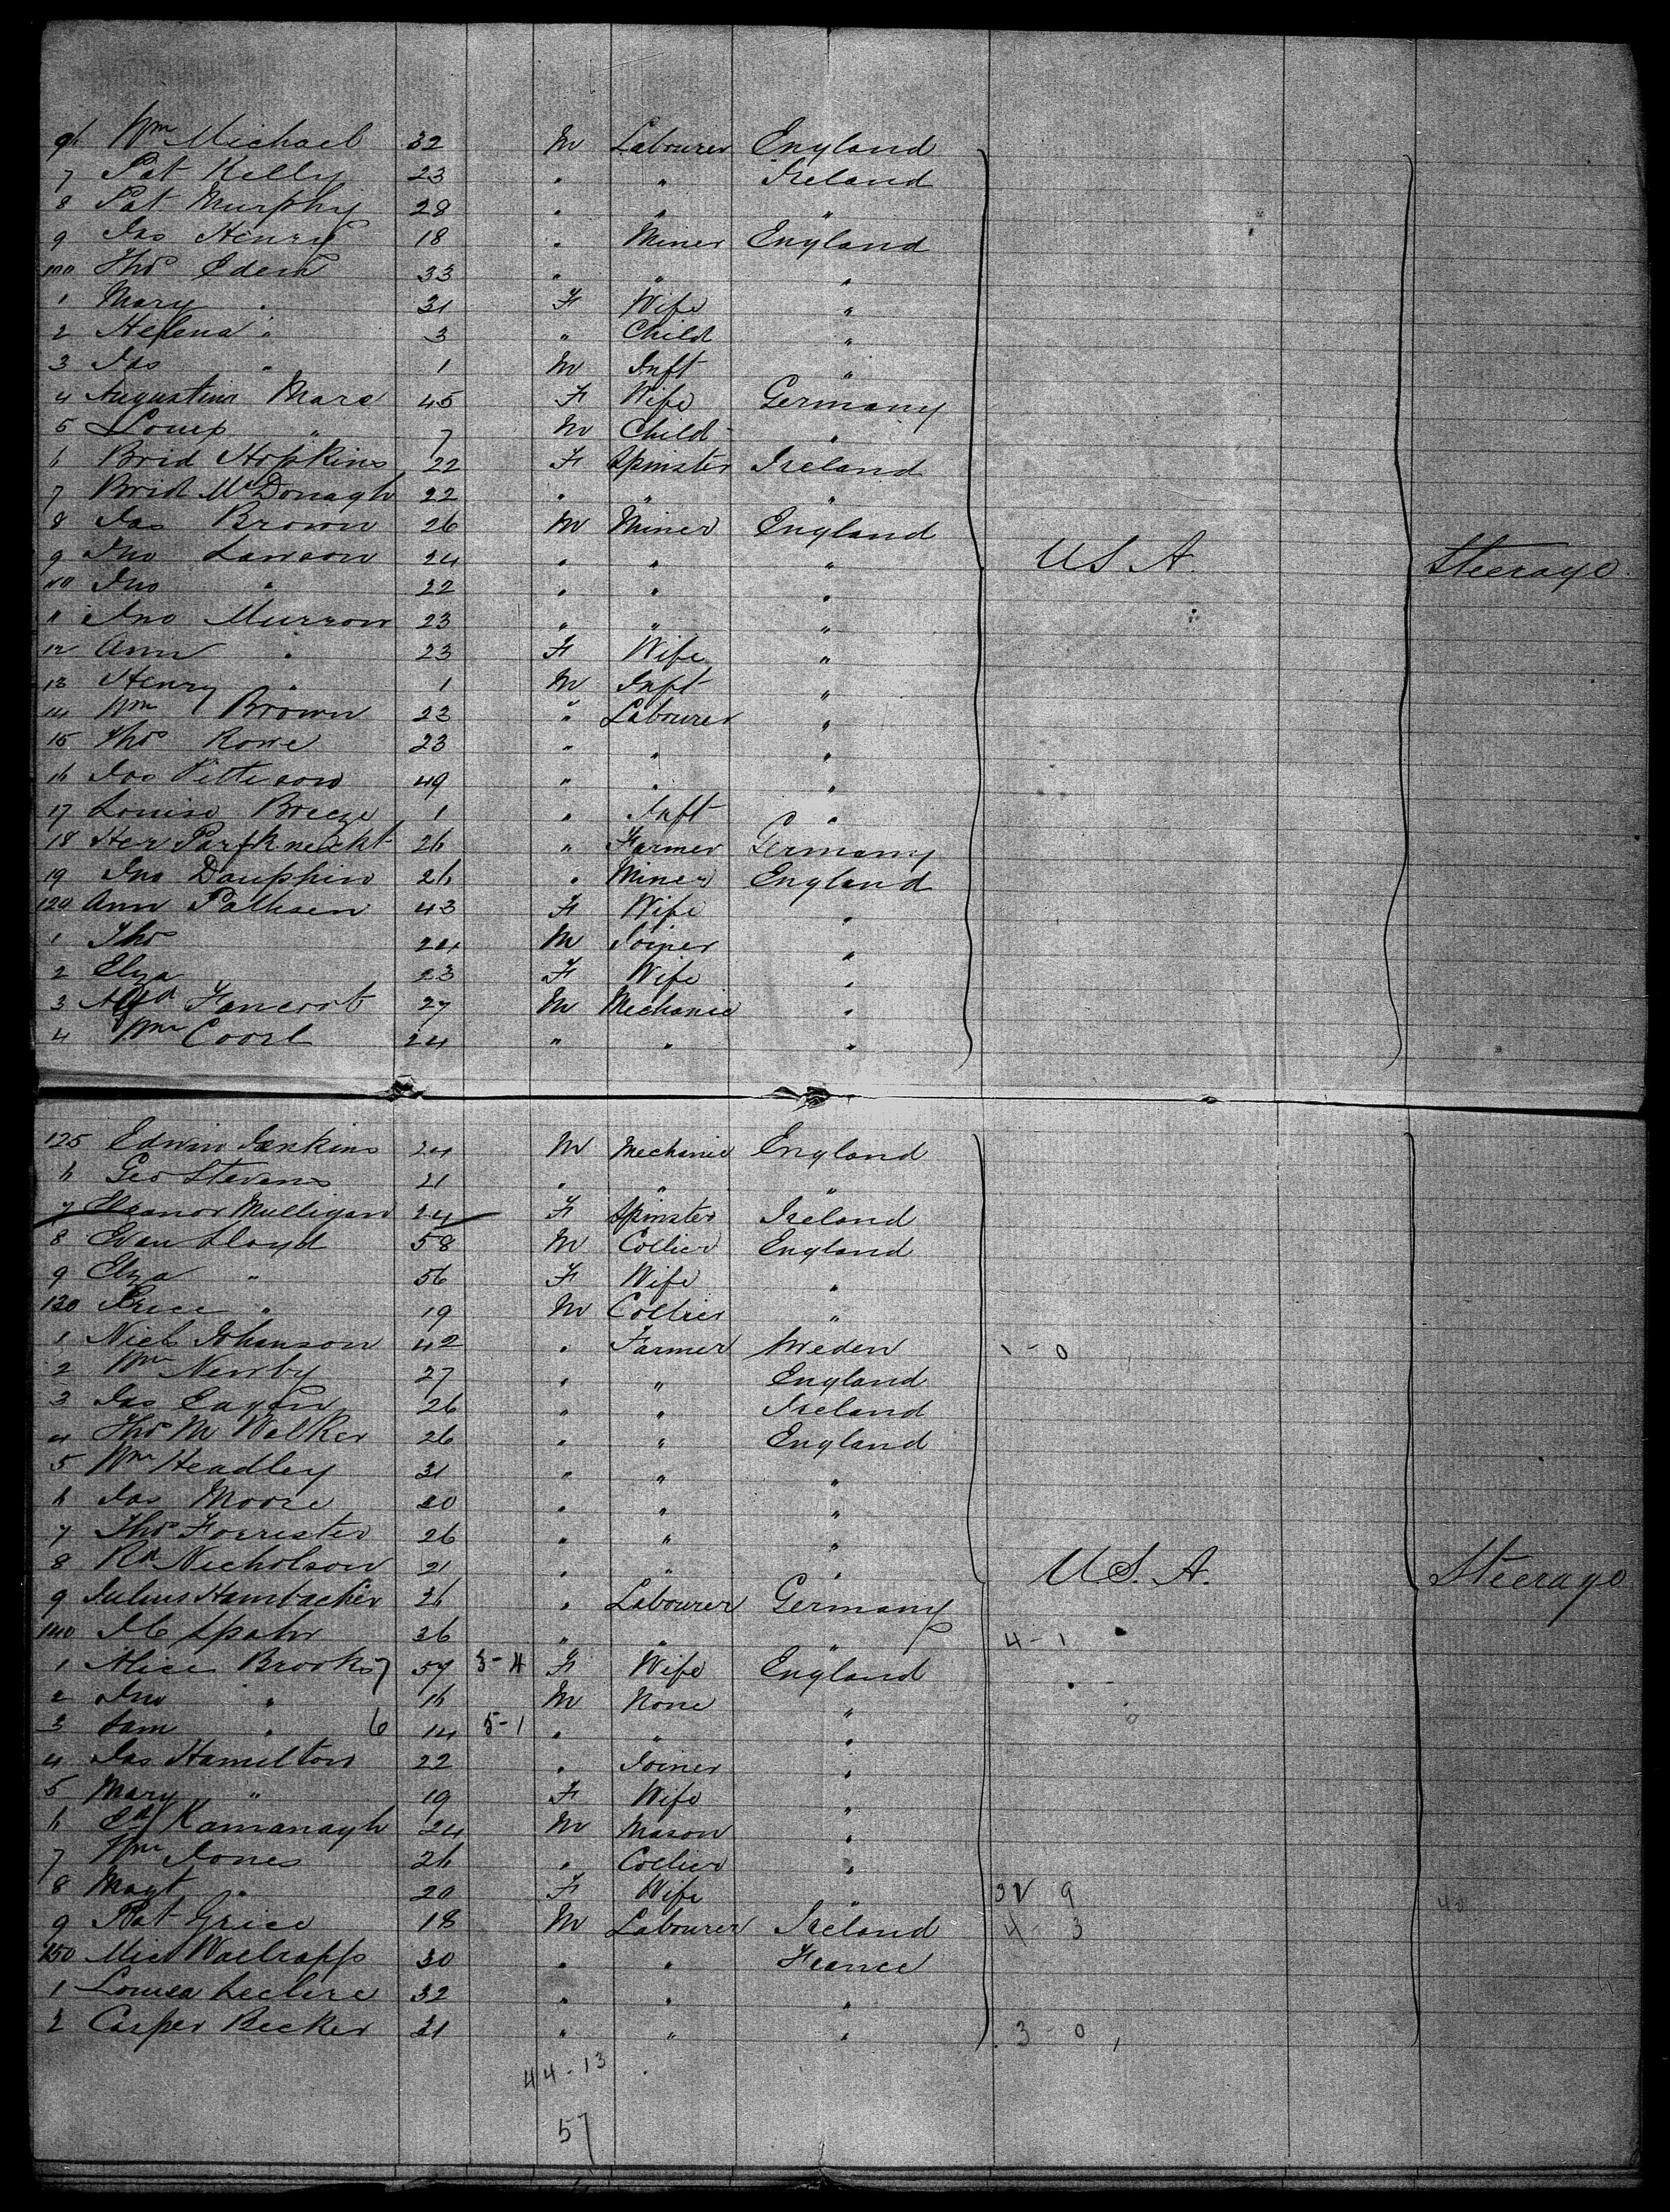 96 Wm Michael 32 M Labourer England
7 Pat Kelly 23 " " Ireland
8 Pat Murphy 28 " " "
9 Jas Henry 18 " Miner England
100 Thos Edem 33 " " "
1 Mary " 31 F Wife "
2 Helena " 3 " Child "
3 Jas " 1 M Inft "
4 Augustina Mare 45 F Wife Germany
5 Louis " 7 M Child "
6 Brid Hopkins 22 F Spinster Ireland
7 Brid McDonagh 22 " " "
8 Jas Brown 26 M Miner England
9 Jno Lawson 24 " " " U S A. Steerage
110 Jno " 22 " " "
11 Jno Murrow 23 " " "
12 Ann " 23 F Wife "
13 Henry " 1 M Inft "
14 Wm Brown 23 " Labourer "
15 Thos Rowe 23 " " "
16 Jos Pitterson 49 " " "
17 Louise Breeze 1 " Inft "
18 Her 26 " Farmer Germany
19 Jno Dauphin 26 " Miner England
120 Ann Pattisen 43 F Wife "
1 Thos 24 M Joiner "
2 Elza 23 F Wife "
3 Alfd Fancort 27 M Mechanic "
4 Wm Coorl 24 " " "
125 Edwin Jenkins 24 M Mechanic England
6 Geo Stevens 21 " " "
7 Eleanor Mulligan 24 F Spinster Ireland
8 Evan Lloyd 58 M Collier England
9 Elza " 56 F Wife "
130 Price " 19 M Collier "
1 Niels Johanson 42 " Farmer Sweden 1 - 0
2 Wm Newby 27 " " England
3 Jas Eagen 26 " " Ireland
4 Thos M Walker 26 " " England
5 Wm Headley 31 " " "
6 Jas Moore 20 " " "
7 Thos Forrester 26 " " "
8 Rd Nicholson 21 " " " U.S. A. Steerage
9 Julius Hambacher 36 " Labourer Germany
140 Spahr 36 " " " 4 - 1
1 Alice Brooks 7 57 3-4 F Wife England
2 Jno " 16 M None "
3 Sam " 6 14 5-1 " " "
4 Jas Hamilton 22 " Joiner "
5 Mary " 19 F Wife "
6 Ed Kamanagh 24 M Mason "
7 Wm Jones 26 " Collier "
8 Magt " 20 F Wife " 9
9 Pat Grice 18 M Labourer Ireland 4 - 3
150 30 " " France
1 Louisa Leclere 32 " " "
2 Casper Becker 21 " " " 3 - 0
44-13
57